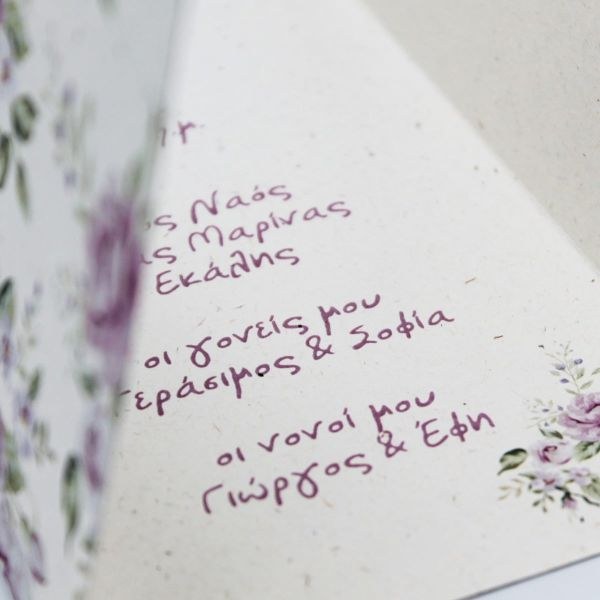 μ.μ.
Ναός
Μαρίνας
Εκάλης
οι γονείς μου
Γεράσιμος & Σοφία
οι νονοί μου
Γιώργος & Έφη